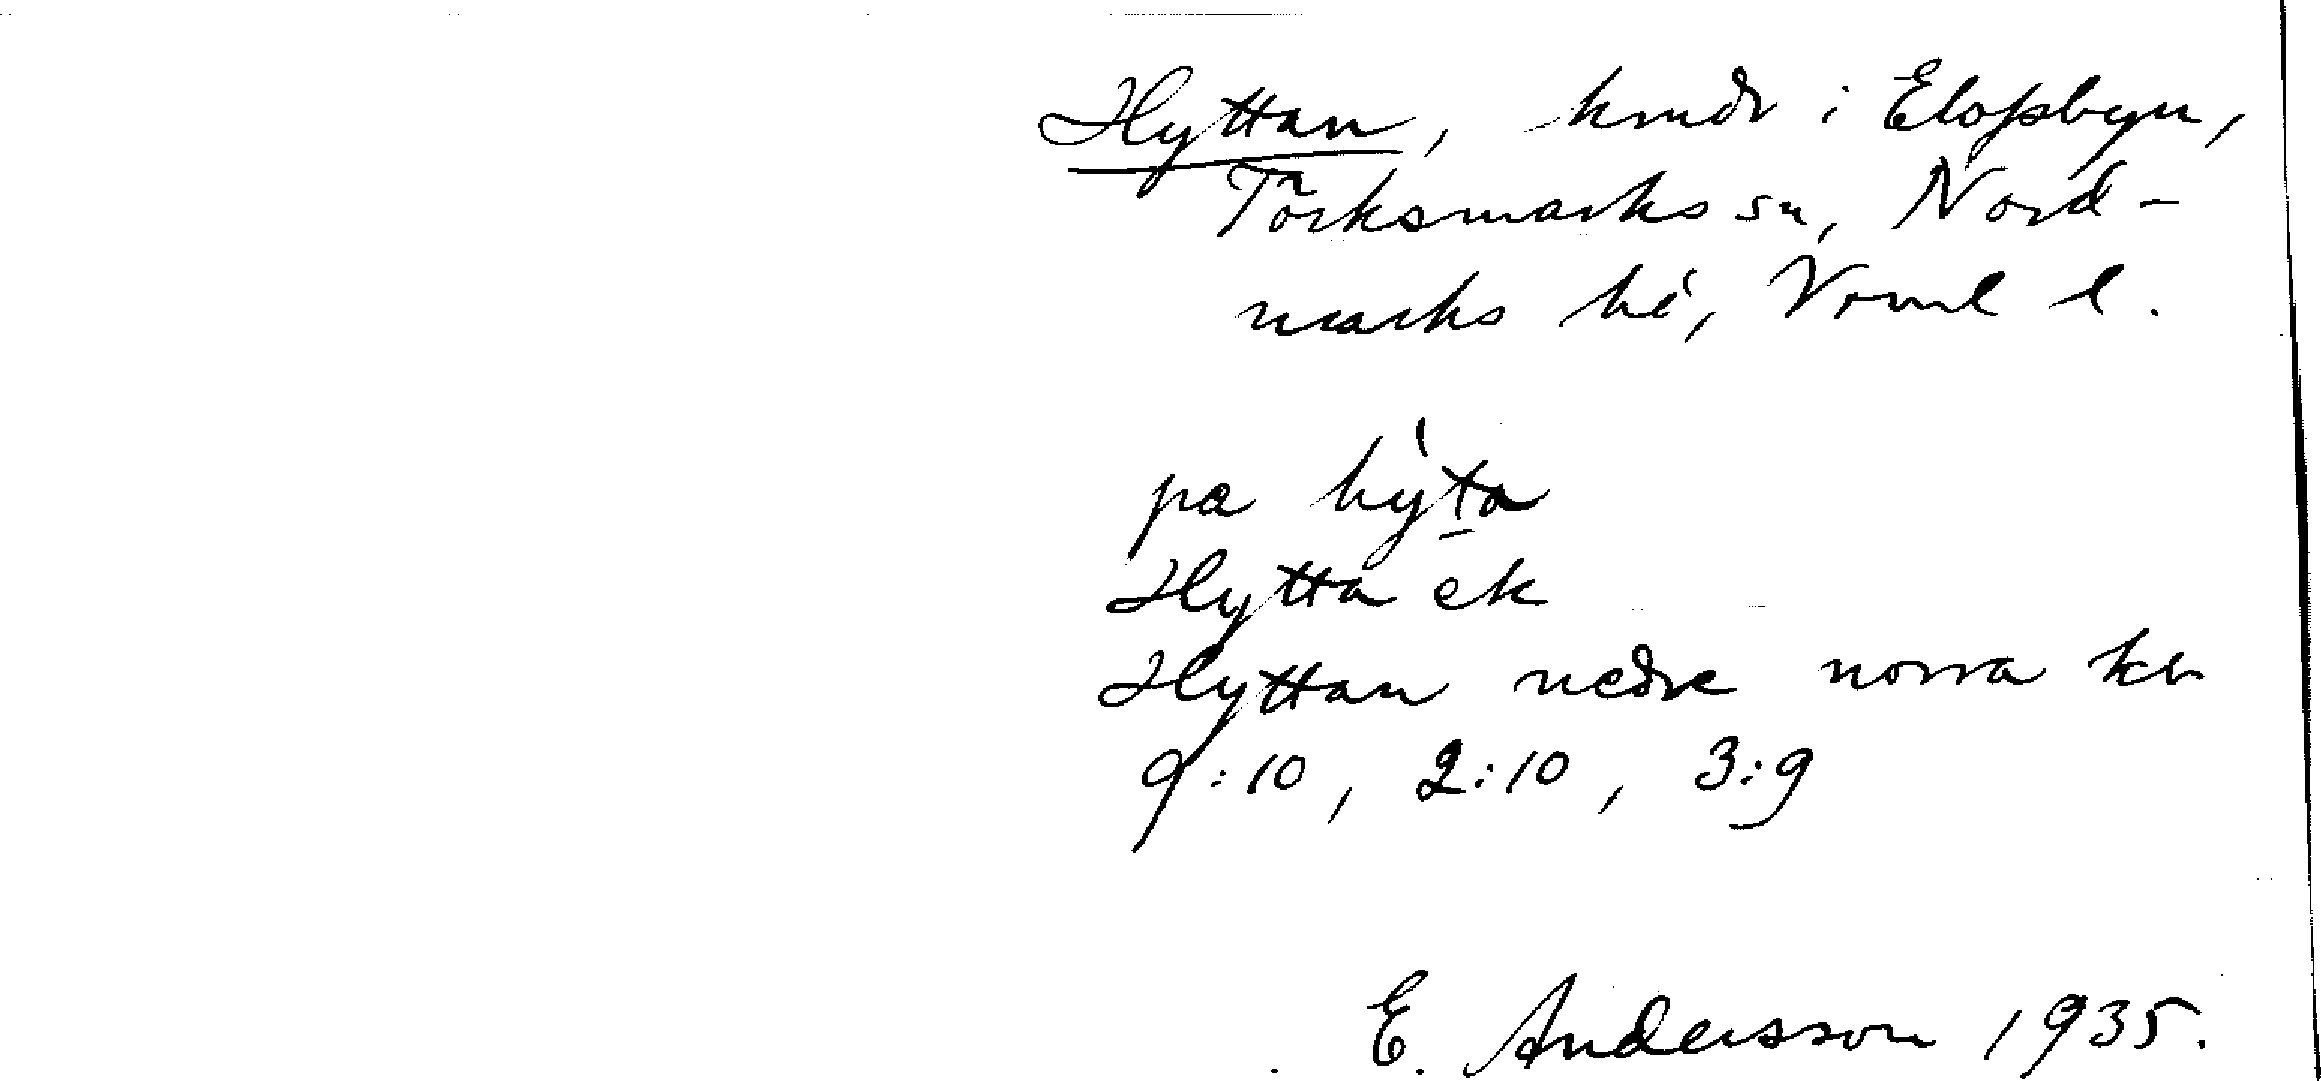 Hyttan, hmdr i Elofsbyn,
Törksmarks sn, Nord-
marks hd, Vrml l.
pa hy̍ta
Hytta ek
Hyttan nedre norra
9:10, 2:10, 3:9
E. Andersson 1935.